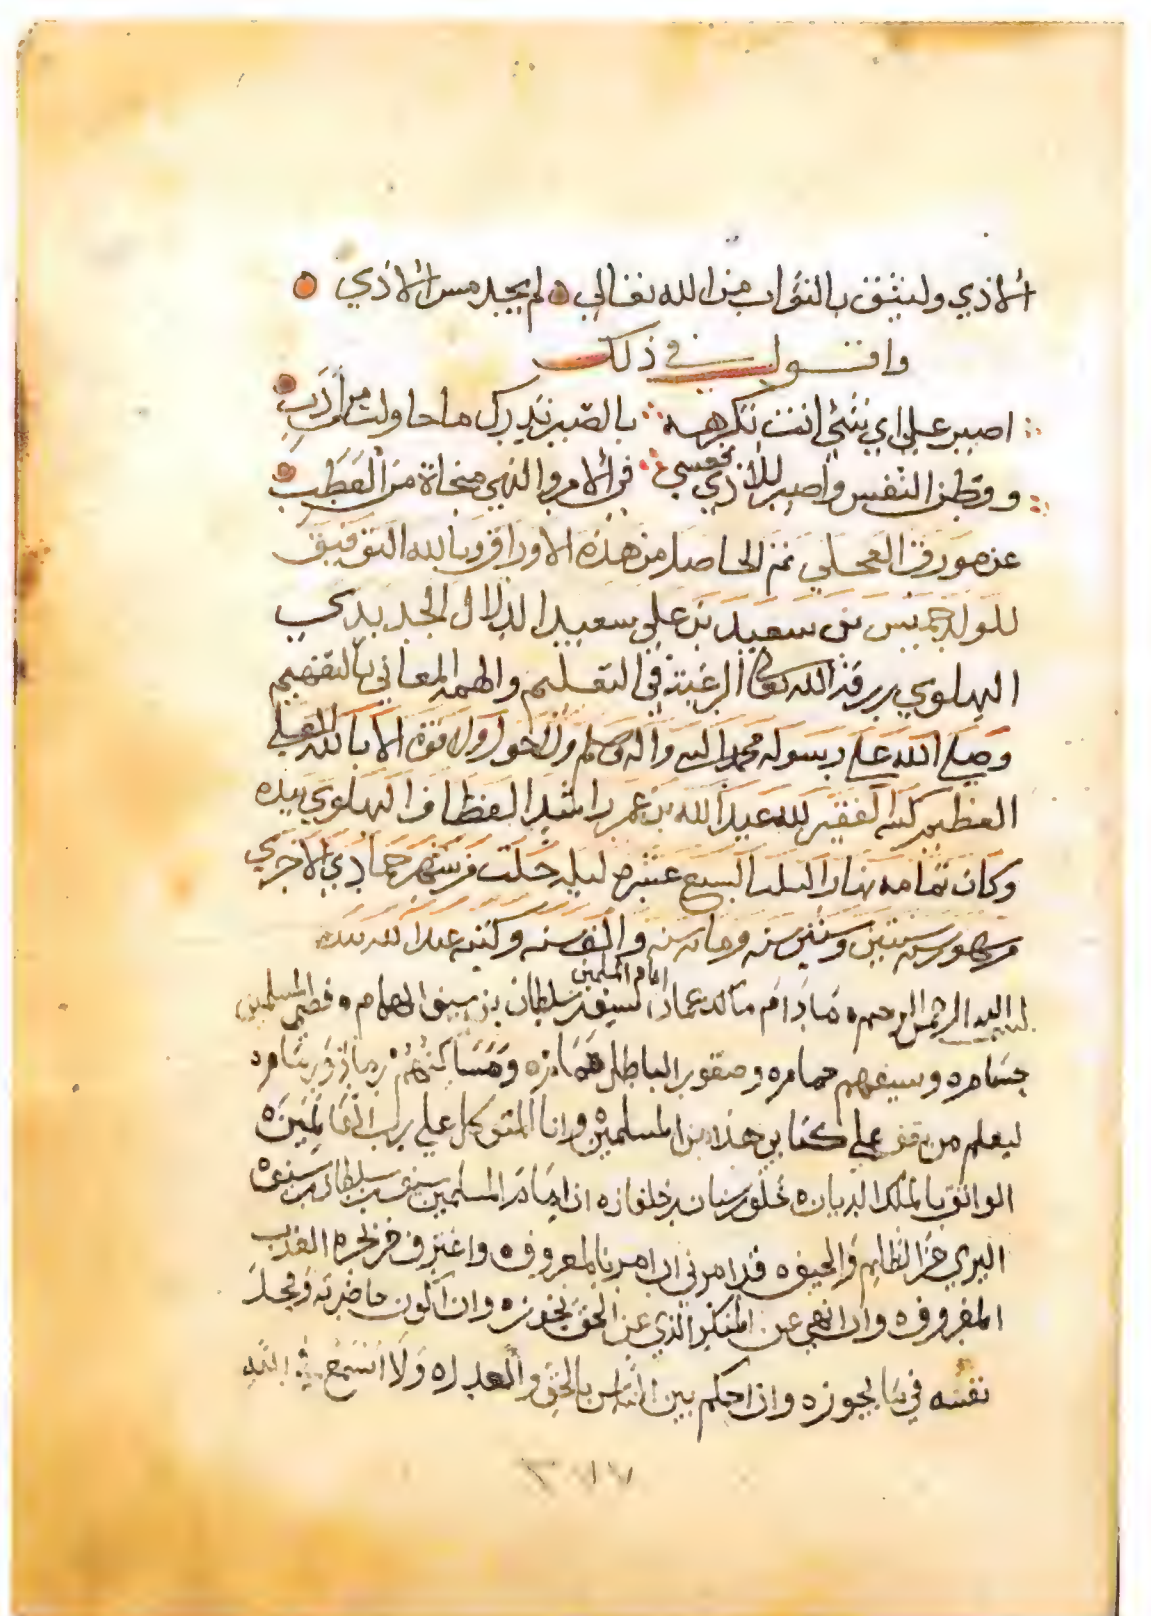 الاذي وليثق بالثواب من الله تعالي لم يجد مس الاذي
واقول في ذلك
اصبر علي اي شئ انت تكرهه بالصبر تدرك ما حاولت من أدب
ووطن النفس واصبر للاذي تحمسي في الامر والنهي منجاة من العطب
عن مورق العجلي تم الحاصل من هذه الاوراق وبالله التوفيق
للولد خميس بن سعيد بن علي سعيد الدلال الجديدي
البهلوي رزقه الله تعالي الرغبة في التعليم والهمه المعاني بالتفهيم
وصلي الله علي رسوله محمد النبي واله وسلم ولا حول ولا قوة الا بالله العلي
العظيم كتبه الفقير لله عبد الله بن عمر راشد العظافي البهلوي بيده
وكان تمامه نهار السبع عشره ليله خلت من شهر جمادي الاخري
من شهور سنه سنتين وستين سنه ومايه سنه والف سنه وكتبه عبد الله بيده
بسم الله الرحمن الرحيم ما دام مالك عمان لسيف بن سلطان بن سيف الهمام فصمي المسلمين
امام المسلمين
حسامه وسيفهم حمامه وصقور الباطل هامه ومساكنهم
ليعلم من يقف علي كتابي هذا من المسلمين وانا المتوكل علي رب العالمين
الواثق بالملك الديان خلف بن سنان بن خلفان ان امام المسلمين سيف بن سلطان بن سيف
البري من الظلم والحيف قد امرني ان امر بالمعروف واغترف من بحره العذب
المغروف وان انهي عن المنكر الذي عن الحق يحوزه وان اكون حاضرته ومحل
نفسه في ما يجوز وان احكم بين الناس بالحق والعدل ولا اسمع في الله